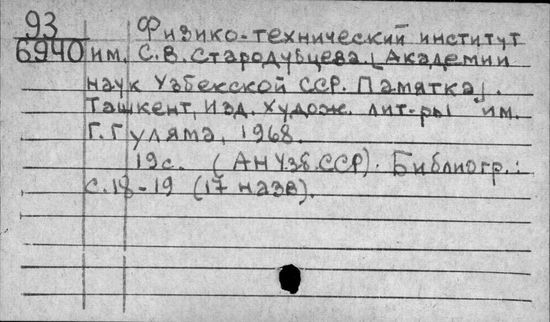 93 Физико-технический институт
6940 им. С.В. Стародубцева [Академии
наук Узбекской ССР. Памятка].
Ташкент, Изд. худож. лит-ры им.
Г. Гуляма, 1968.
19с. (АН УзбССР). Библиогр.:
с.18-19 (17 назв).